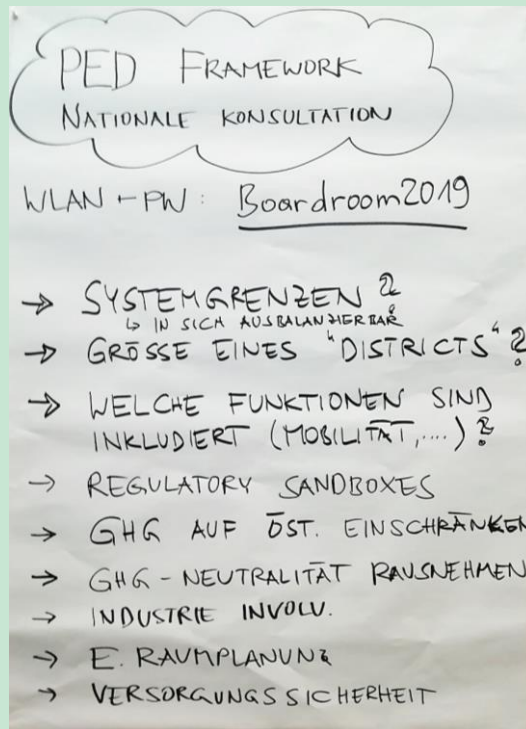 PED FRAMEWORK
NATIONALE KONSULTATION
WLAN - PW: Boardroom2019
→ SYSTEMGRENZEN ?
↳ IN SICH AUSBALANZIERBAR
→ GRÖSSE EINES "DISTRICTS" ?
→ WELCHE FUNKTIONEN SIND
INKLUDIERT (MOBILITÄT,....) ?
→ REGULATORY SANDBOXES
→ GHG AUF ÖST. EINSCHRÄNKEN
→ GHG - NEUTRALITÄT RAUSNEHMEN
→ INDUSTRIE INVOLV.
→ E. RAUMPLANUNG
→ VERSORGUNGSSICHERHEIT